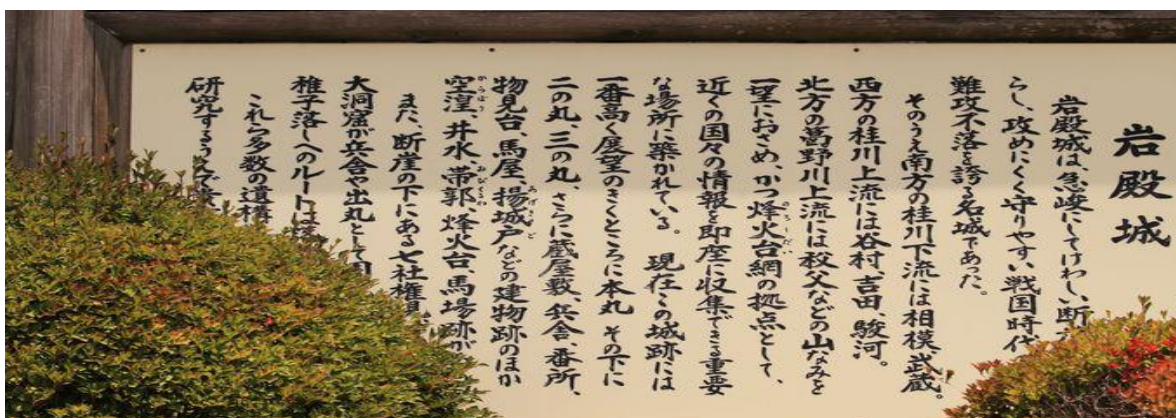 岩殿城
岩殿城は、急峻にしてけわしい断
らし、攻めにくく守りやすい戦国時代
難攻不落を誇る名城であった。
そのうえ南方の桂川下流には相模、武蔵。
西方の桂川上流には谷村、吉田、駿河。
北方の葛野川上流には秩父などの山なみを
一望におさめ、かつ烽火台網の拠点として、
近くの国々の情報を即座に収集できる重要
な場所に築かれている。現在この城跡には
一番高く展望のきくところに本丸 その下に
二の丸、三の丸、さらに蔵屋敷、兵舎、番所、
物見台、馬屋、揚城戸などの建物跡のほか
空湟、井水、帯郭、烽火台、馬場跡が
また、断崖の下にある七社権現
大洞窟が兵舎や出丸として
稚子落しへのルートは
これら多数の遺構
研究するうえで